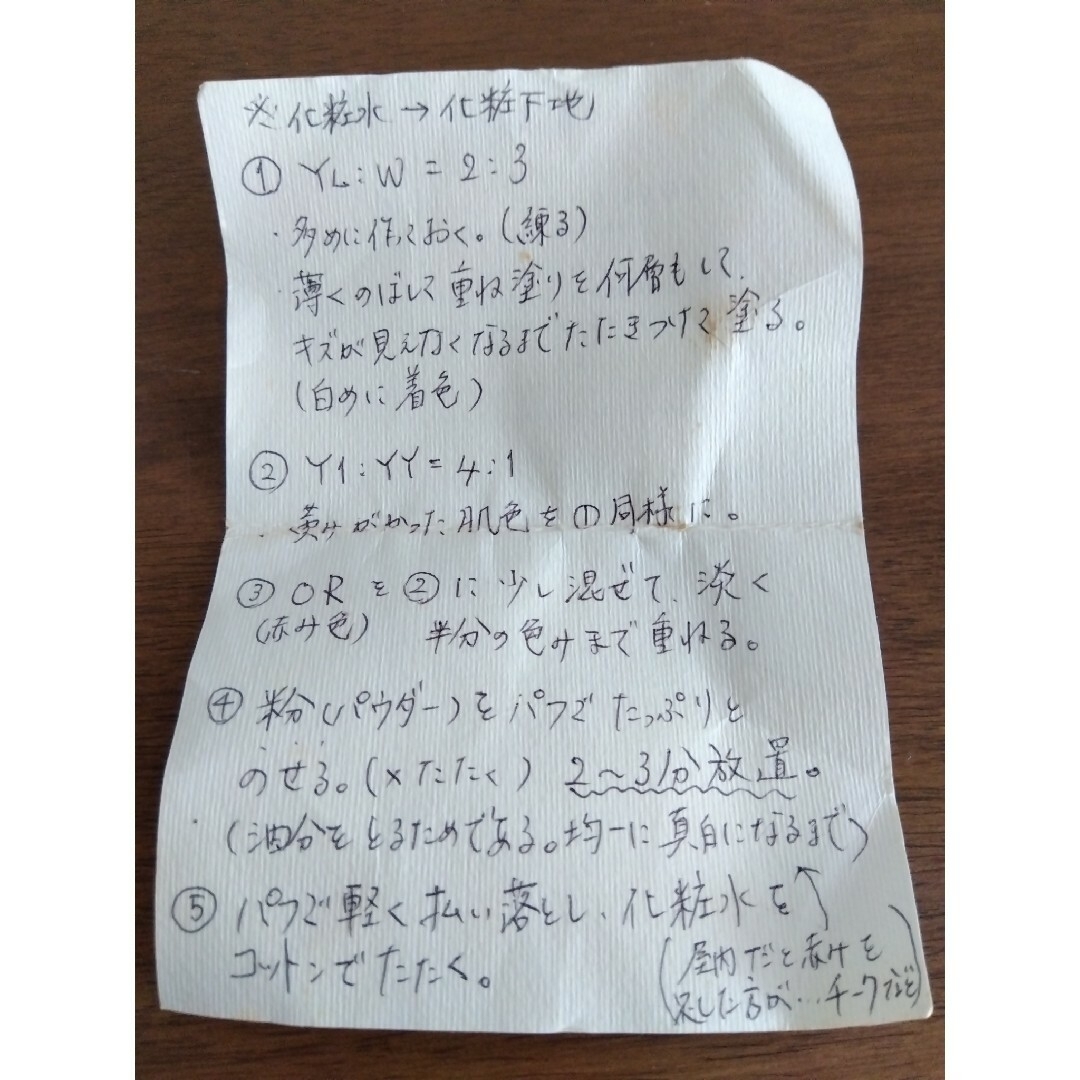 ※化粧水→化粧下地
① YL:W=2:3
・多めに作っておく。(練る)
・薄くのばして重ね塗りを何層もして、
キズが見えなくなるまでたたきつけて塗る。
(白めに着色)
② Y1:YY=4:1
・黄みがかった肌色を①同様に。
③ ORを②に少し混ぜて、淡く
(赤み色) 半分の色みまで重ねる。
④ 粉分(パウダー)をパフでたっぷりと
のせる。(×たたく) 2〜3分放置。
・(油分をとるためである。均一に真白になるまで)
⑤ パフで軽く払い落とし、化粧水を
コットンでたたく。
(屋内だと赤みを
足した方が…チークなど)